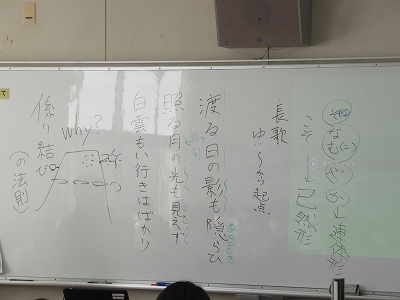 ぞ なむ(ん) や か→連体形
こそ→已然形
長歌
ゆ:〜から 起点
渡る日の影も隠らひ
照る月の光も見えず
白雲もい行きはばかり
Why?
係り結び
(の法則)